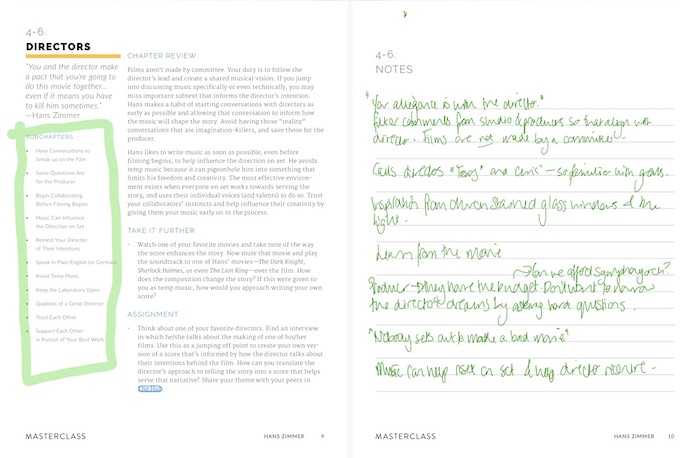 4-6.
DIRECTORS
"You and the director make
a pact that you're going to
do this movie together...
even if it means you have
to kill him sometimes."
—Hans Zimmer
SUBCHAPTERS
• Have Conversations to
Break up on the Film
• Save Questions Are
for the Producer
• Begin Collaborating
Before Filming Begins
• Music Can Influence
the Direction on Set
• Remind Your Director
of Their Intentions
• Speak in Plain English (or German)
• Avoid Temp Music
• Keep the Laboratory Open
• Qualities of a Great Director
• Trust Each Other
• Support Each Other
in Pursuit of Your Best Work
CHAPTER REVIEW
Films aren't made by committee. Your duty is to follow the
director's lead and create a shared musical vision. If you jump
into discussing music specifically or even technically, you may
miss important subtext that informs the director's intention.
Hans makes a habit of starting conversations with directors as
early as possible and allowing that conversation to inform how
the music will shape the story. Avoid having those "reality"
conversations that are imagination-killers, and save those for the
producer.
Hans likes to write music as soon as possible, even before
filming begins, to help influence the direction on set. He avoids
temp music because it can pigeonhole him into something that
limits his freedom and creativity. The most effective environ-
ment exists when everyone on set works towards serving the
story, and uses their individual voices (and talents) to do so. Trust
your collaborators' instincts and help influence their creativity by
giving them your music early on in the process.
TAKE IT FURTHER
• Watch one of your favorite movies and take note of the way
the score enhances the story. Now mute that movie and play
the soundtrack to one of Hans' movies—The Dark Knight,
Sherlock Holmes, or even The Lion King—over the film. How
does the composition change the story? If this were given to
you as temp music, how would you approach writing your own
score?
ASSIGNMENT
• Think about one of your favorite directors. Find an interview
in which he/she talks about the making of one of his/her
films. Use this as a jumping off point to create your own ver-
sion of a score that's informed by how the director talks about
their intentions behind the film. How can you translate the
director's approach to telling the story into a score that helps
serve that narrative? Share your theme with your peers in
The Hub
MASTERCLASS
HANS ZIMMER 9
4-6.
NOTES
"Your allegiance is with the director."
Filter comments from studio & producers so that align with
director. Films are not made by a committee.
Calls directors "Tony" and "Chris" — so familiar with greats.
Inspiration from driven stained glass windows & the
light.
Learn from the movie
Can we afford symphony orch?
Producer - they have the budget. Don't want to narrow
the directors dreams by asking hard questions.
"Nobody sets out to make a bad movie"
Music can help set on set & help director
MASTERCLASS
HANS ZIMMER 10